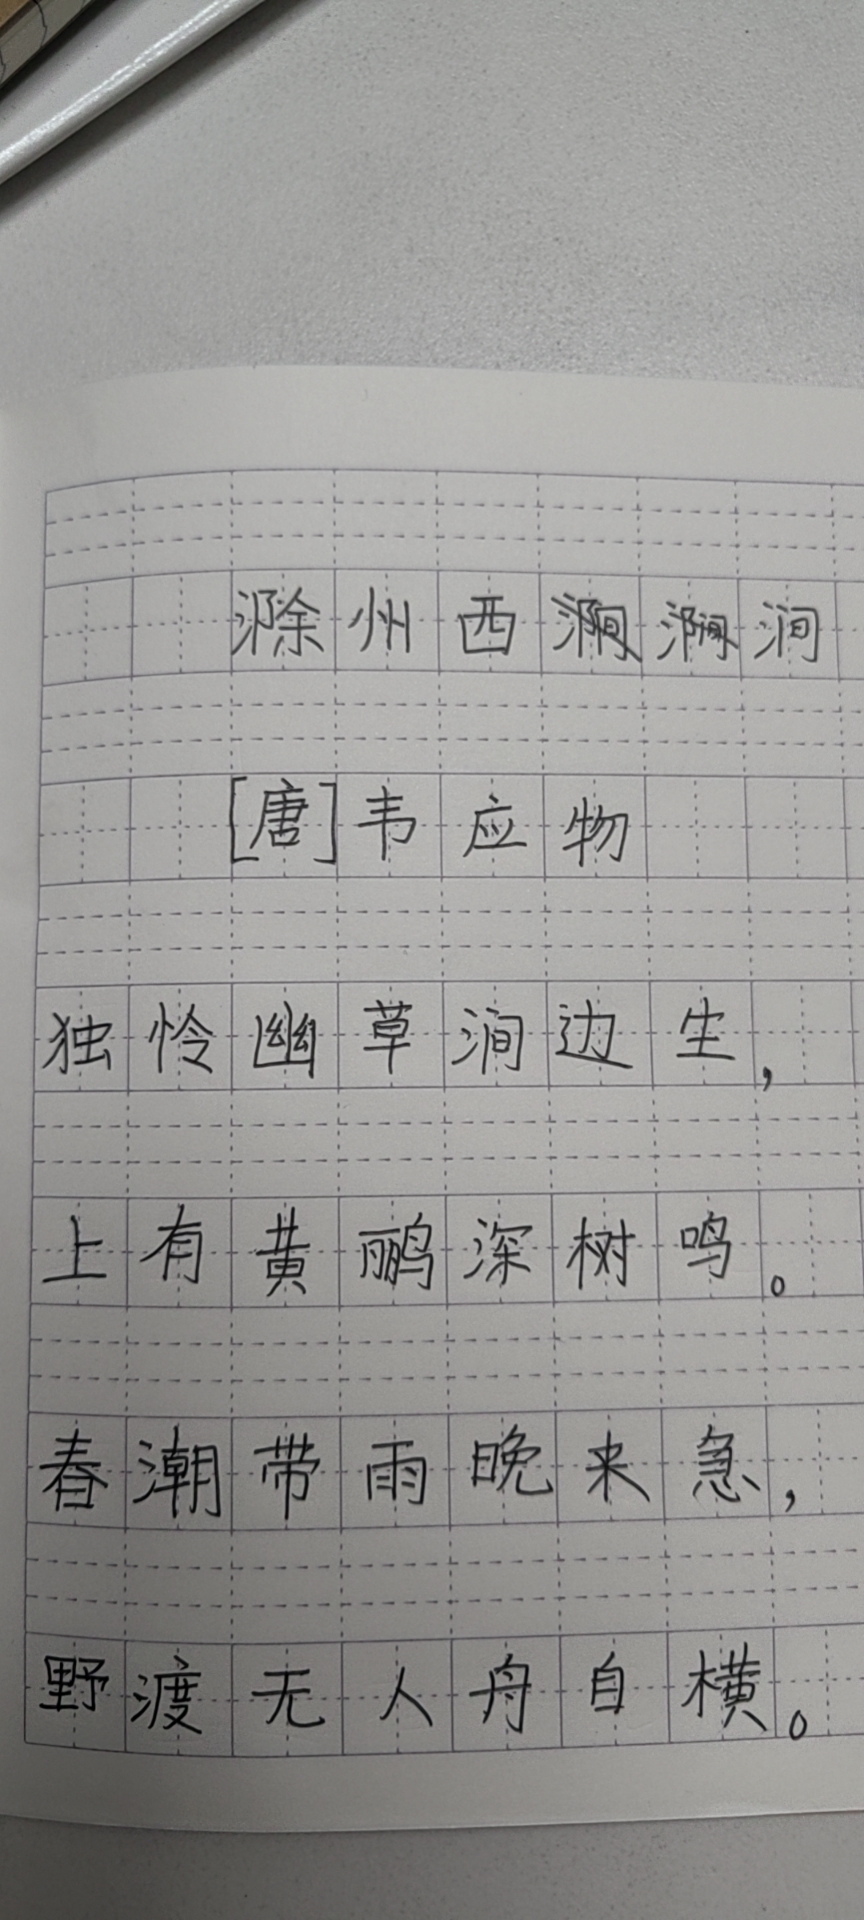 滁州西涧
[唐]韦应物
独怜幽草涧边生，
上有黄鹂深树鸣。
春潮带雨晚来急，
野渡无人舟自横。